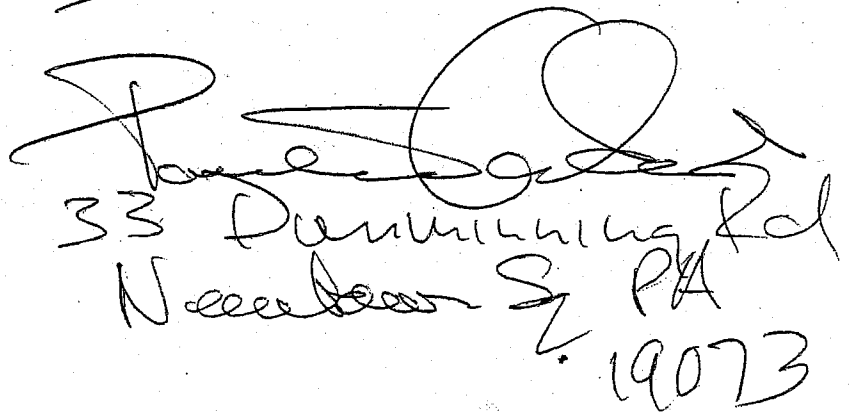 33 Dunminning Rd
Newtown Sq. PA
19073